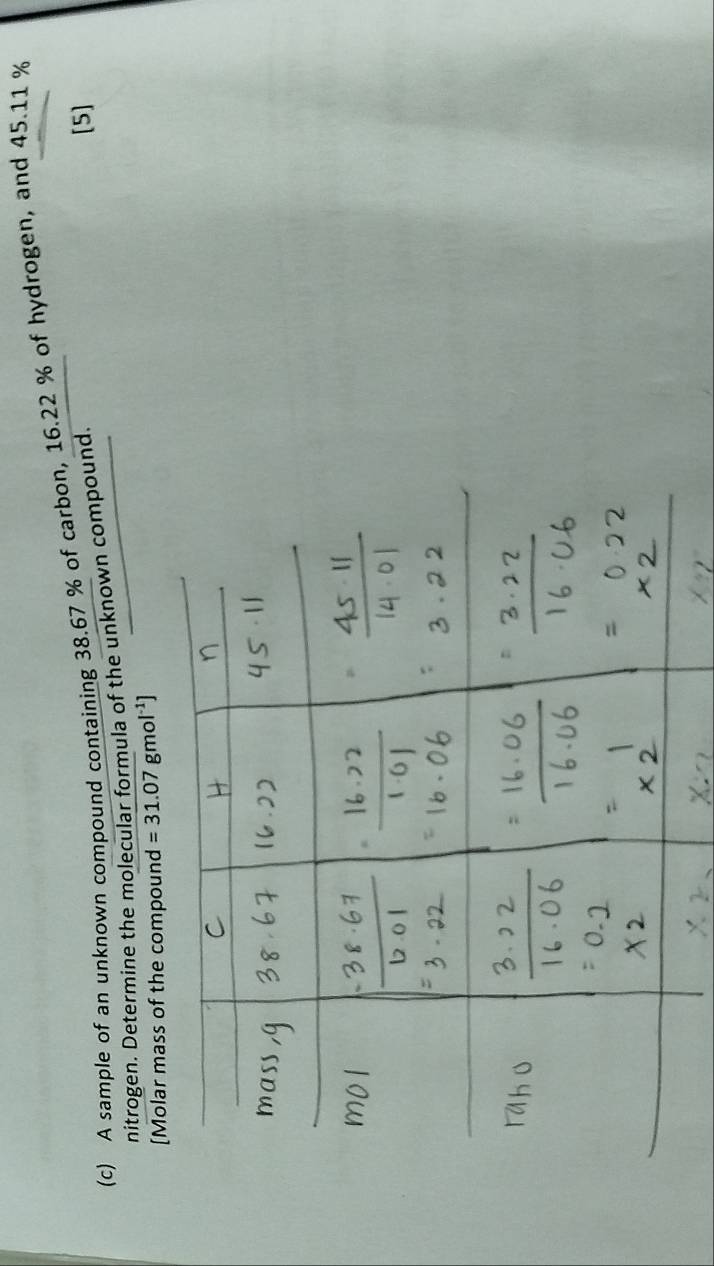 (c) A sample of an unknown compound containing 38.67 % of carbon, 16.22 % of hydrogen, and 45.11 %
nitrogen. Determine the molecular formula of the unknown compound. [5]
[Molar mass of the compound = 31.07 gmol⁻¹]
C H n
mass, g 38.67 16.22 45.11
mol = 38.67 = 16.22 = 45.11
12.01 1.01 14.01
= 3.22 = 16.06 = 3.22
ratio 3.22 = 16.06 = 3.22
16.06 16.06 16.06
= 0.2 = 1 = 0.22
x2 x2 x2